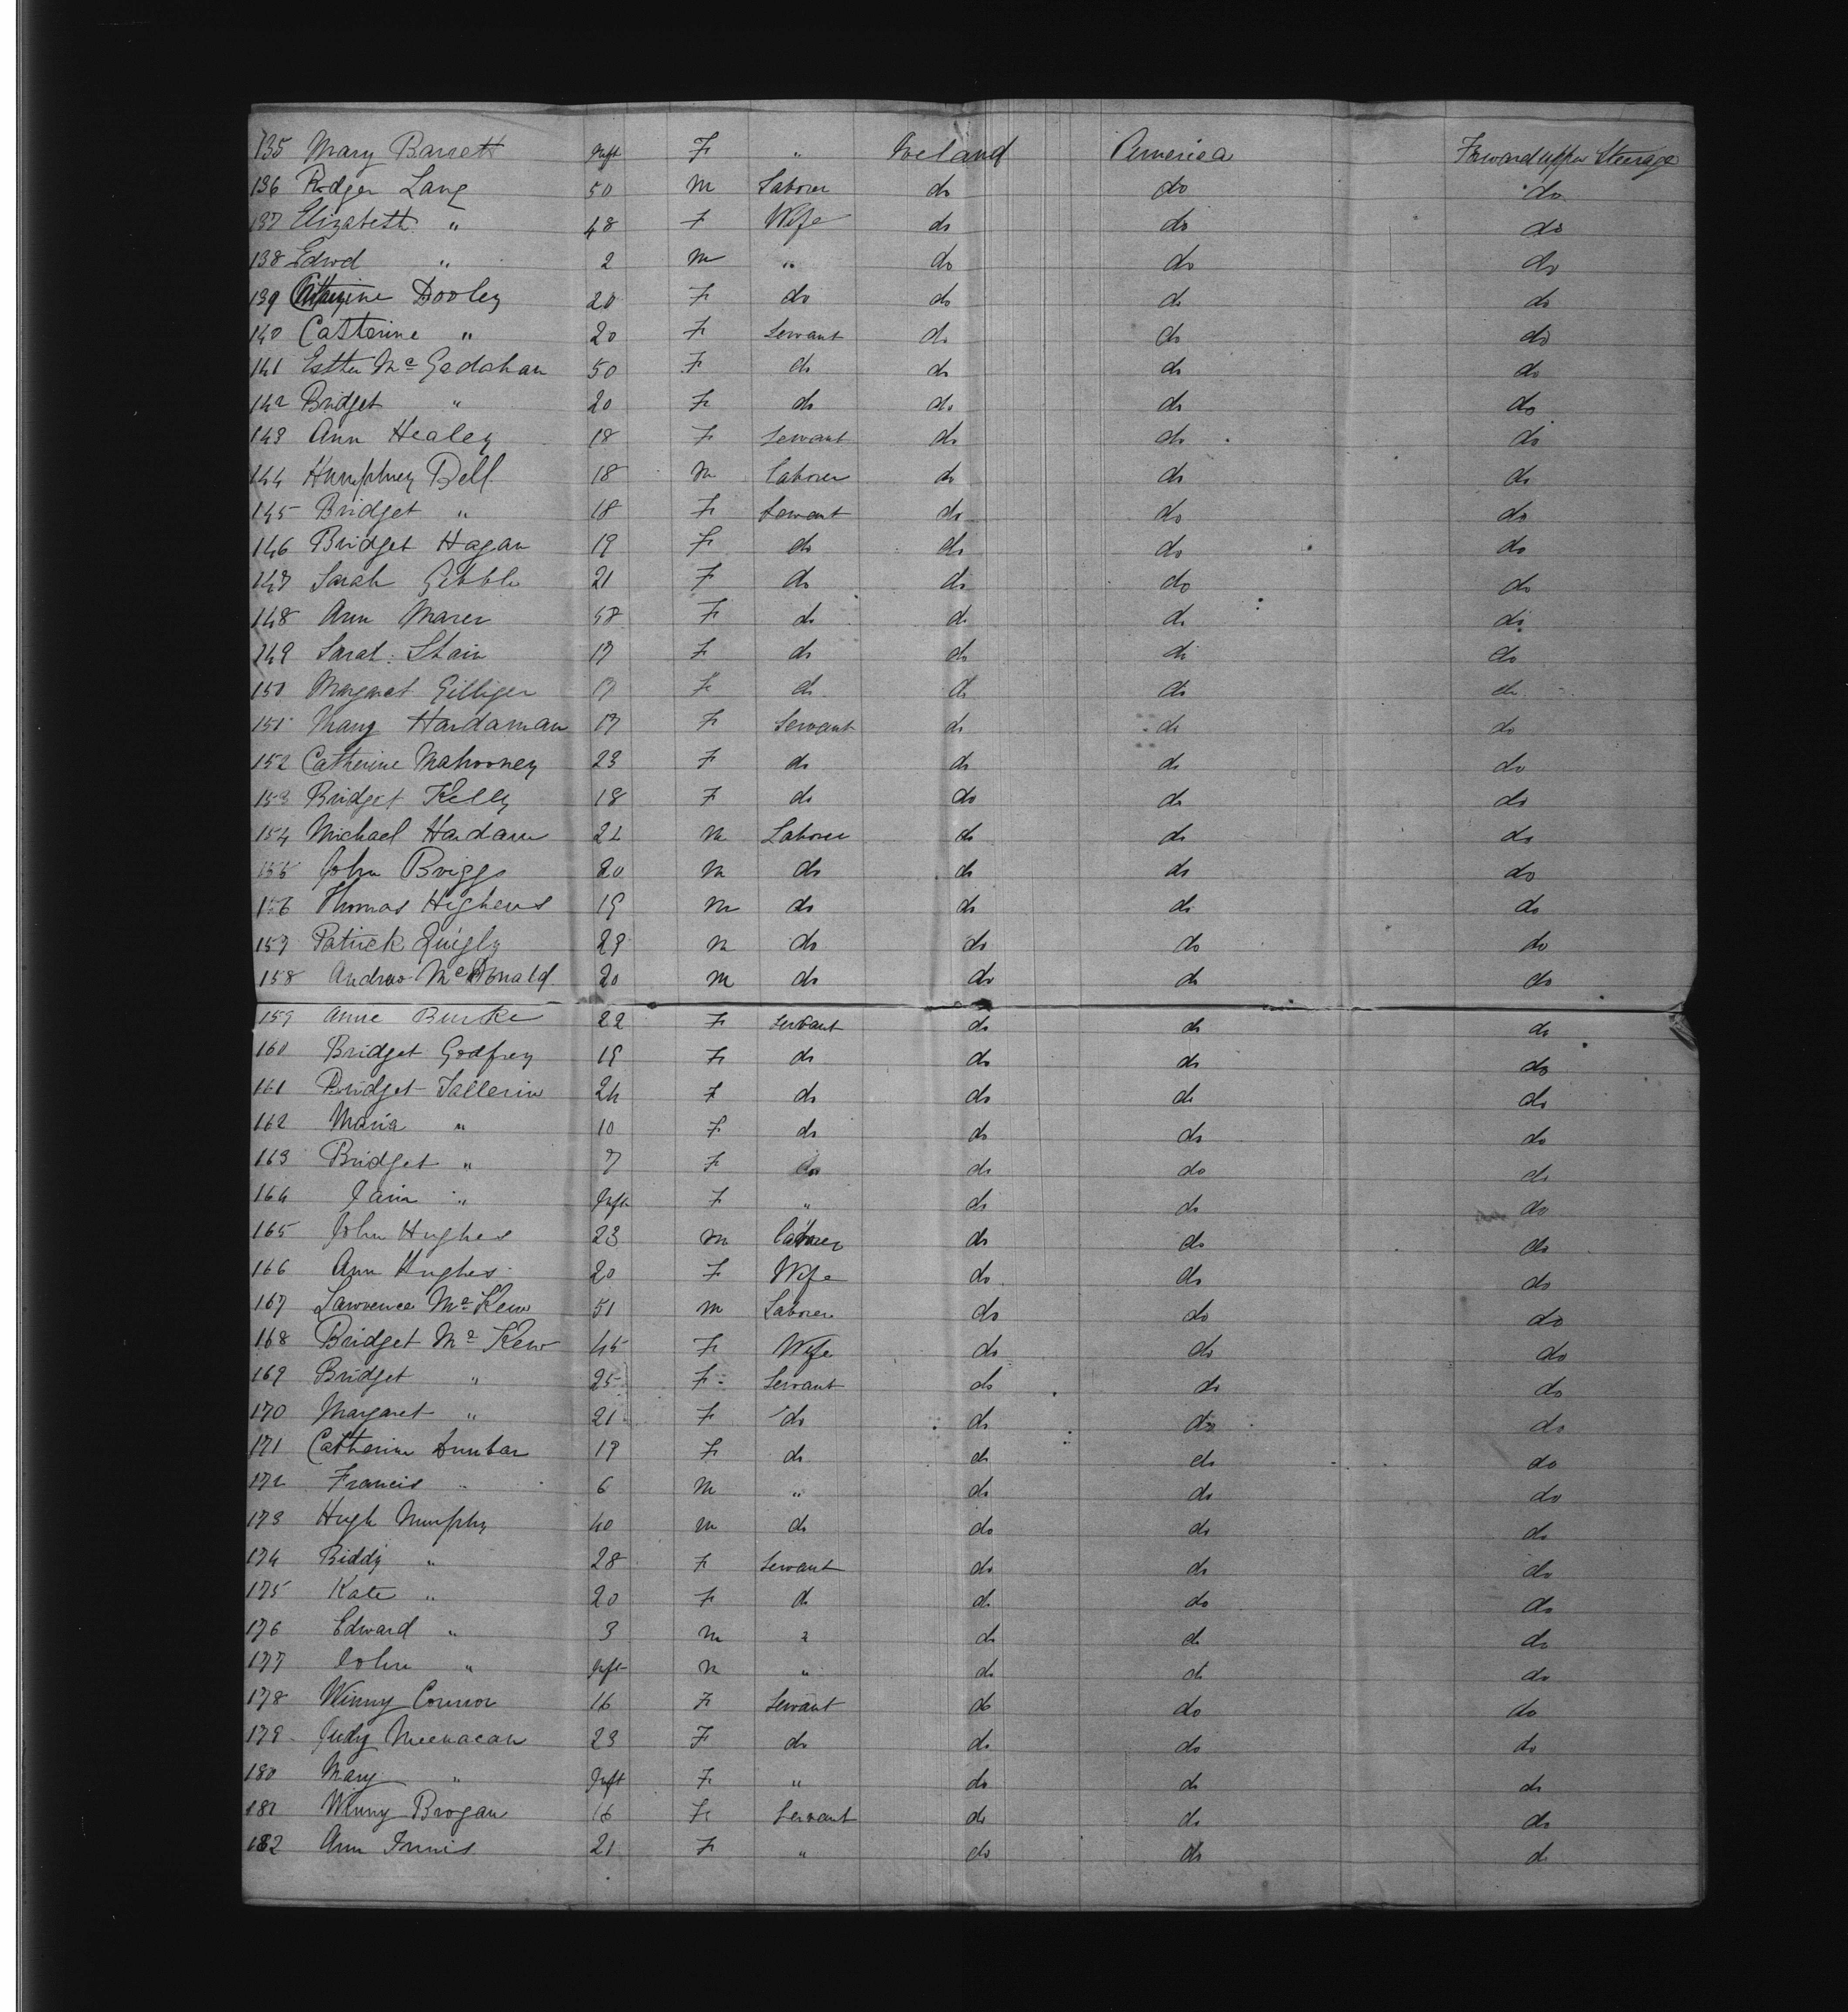 135 Mary Barrett Inft F " Ireland America Forward upper Steerage
136 Rodger Lang 50 M Laborer do do do
137 Elizabeth " 48 F Wife do do do
138 Edwd " 2 M " do do do
139 Dooley 20 F do do do do
140 Catherine " 20 F Servant do do do
141 Esther Mc Gedahan 50 F do do do do
142 Bridget " 20 F do do do do
143 Ann Healey 18 F Servant do do do
144 Humphrey Dell 18 M Laborer do do do
145 Bridget " 18 F Servant do do do
146 Bridget Hagan 19 F do do do do
147 Sarah Gibble 21 F do do do do
148 Ann Marer F do do do do
149 Sarah Stain 17 F do do do do
150 Margaret Gilliger F do do do do
151 Mary Hardaman 17 F Servant do do do
152 Catherine Mahooney 23 F do do do do
153 Bridget Kelly 18 F do do do do
154 Michael Hardam M Laborer do do do
155 John Briggs 20 M do do do do
156 Thomas Highens 19 M do do do do
157 Patrick Quigly 29 M do do do do
158 Andrew McDonald 20 M do do do do
159 Anne Burke 22 F Servant do do do
160 Bridget Godfrey 19 F do do do do
161 Bridget Tallerin 24 F do do do do
162 Maria " 10 F do do do do
163 Bridget " 7 F do do do do
164 " Inft F " do do do
165 John Hughes 23 M Laborer do do do
166 Ann Hughes 20 F Wife do do do
167 Lawrence Mc Kew 51 M Laborer do do do
168 Bridget Mc Kew 45 F Wife do do do
169 Bridget " 25 F Servant do do do
170 Margaret " 21 F do do do do
171 Catherine Dunbar 19 F do do do do
172 Francis " 6 M " do do do
173 Hugh Murphy 40 M do do do do
174 Biddy " 28 F Servant do do do
175 Kate " 20 F do do do do
176 Edward " 3 M " do do do
177 John " Inft M " do do do
178 Winny Connor 16 F Servant do do do
179 Judy Meenacan 23 F do do do do
180 Mary " Inft F " do do do
181 Winny Brogan 16 F Servant do do do
182 Ann Innis 21 F " do do do